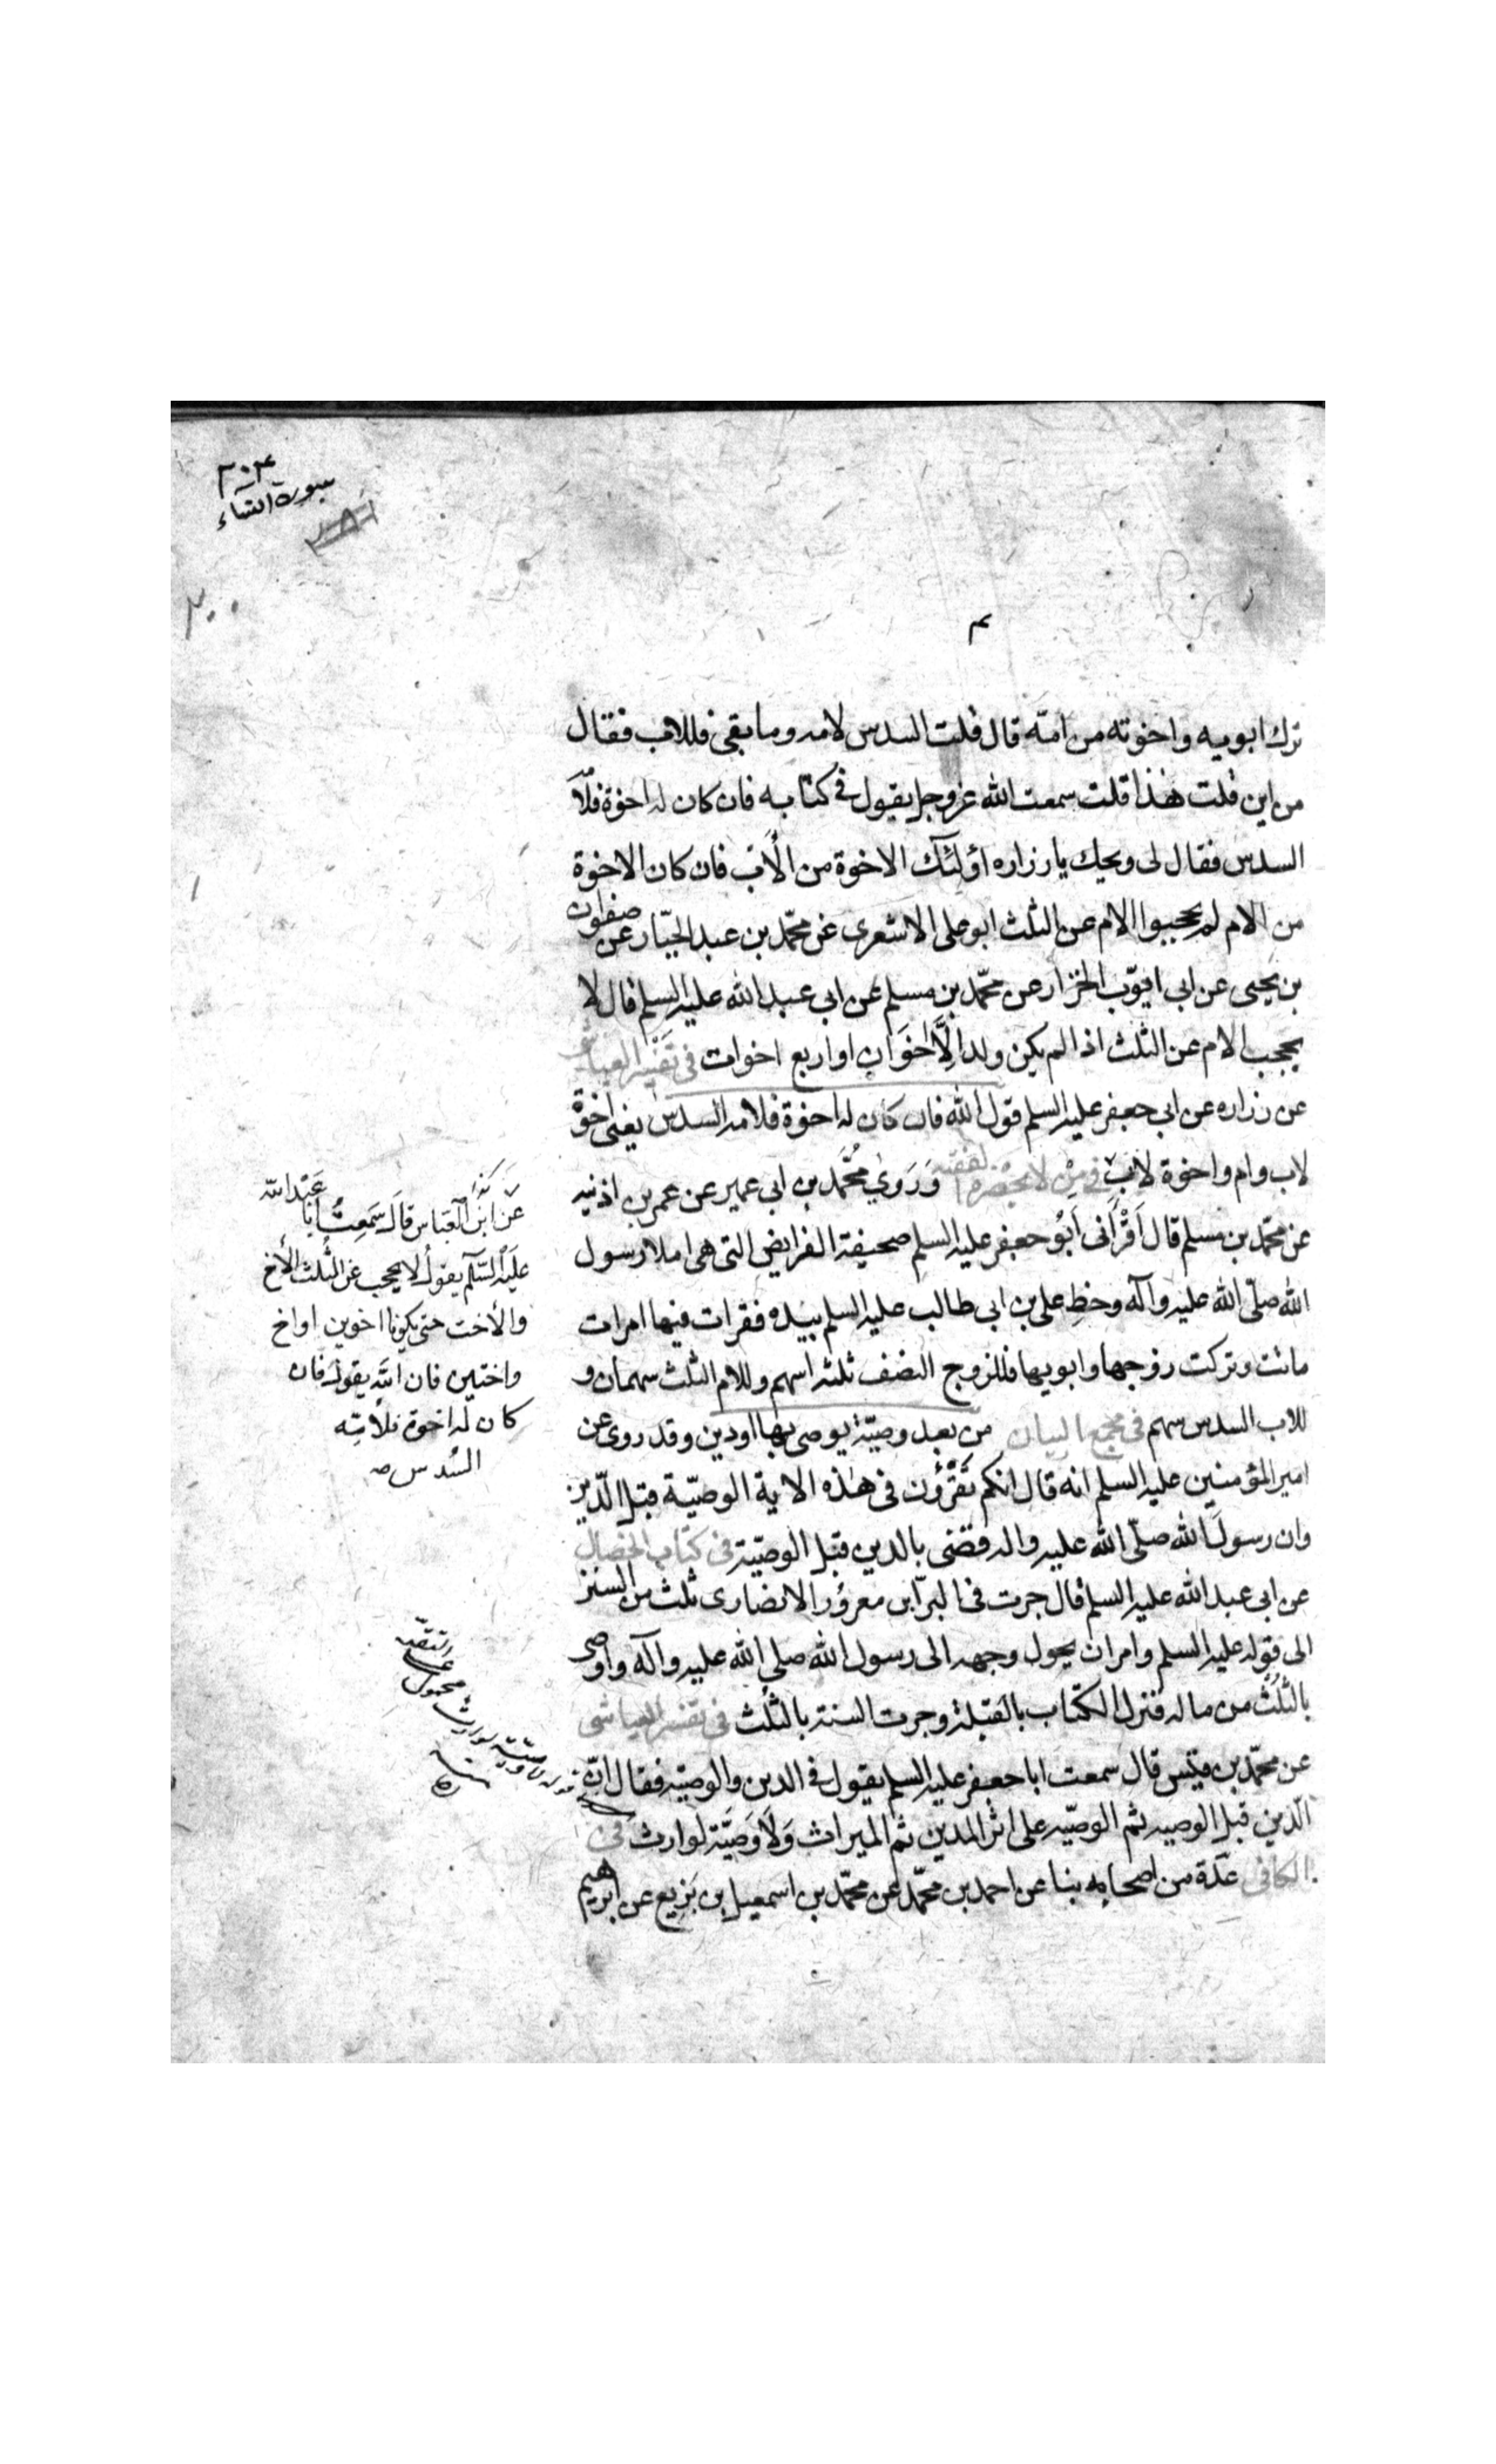 ٣٠٣
سورة النساء
ترك ابويه واخوته من امّه قال قلت السدس لامه وما بقى فللاب فقال
من اين قلت هذا قلت سمعت الله عزوجل يقول فى كتابه فان كان له اخوة فلامّه
السدس فقال لى ويحك يا رزاره اولئك الاخوة من الأب فان كان الاخوة
من الام لم يحجبوا الام عن الثلث ابو على الاشعرى عن محمّد بن عبد الجبّار عن صفوان
بن يحيى عن ابى ايوّب الخزار عن محمّد بن مسلم عن ابى عبد الله عليه السلم قال لا
يحجب الام عن الثلث اذا لم يكن ولد الّا اخوان او اربع اخوات فى تفسير العياشى
عن زراره عن ابى جعفر عليه السلم قول الله فان كان له اخوة فلامه السدس يعنى اخوة
لاب وام واخوة لاب فى من لا يحضره الفقيه وروى محمّد بن ابى عمير عن عمر بن اذنيه
عن محمّد بن مسلم قال اقرأنى ابو جعفر عليه السلم صحيفة الفرايض التى هى املا رسول
الله صلّى الله عليه وآله وخط على بن ابى طالب عليه السلم بيده فقرات فيها امرات
ماتت وتركت زوجها وابويها فللزوج النصف ثلثه اسهم وللام الثلث سهمان و
للاب السدس سهم فى مجمع البيان من بعد وصيّة يوصى بها او دين وقد روى عن
امير المؤمنين عليه السلم انه قال انكم تقرؤن فى هذه الاية الوصيّة قبل الدّين
وان رسول الله صلّى الله عليه واله قضى بالدين قبل الوصيّة فى كتاب الخصال
عن ابى عبد الله عليه السلم قال جرت فى البرّا بن معرور الانصارى ثلث من السنن
الى قوله عليه السلم وامر ان يحول وجهه الى رسول الله صلى الله عليه وآله واوصى
بالثلث من ماله فنزل الكتاب بالقبلة وجرت السنة بالثلث فى تفسير العياشى
عن محمّد بن قيس قال سمعت ابا جعفر عليه السلم يقول فى الدين والوصيّه فقال انّ
الّدين قبل الوصيه ثم الوصيّه على اثر الدين ثم الميراث ولا وصيّة لوارث فى
الكافى عدّة من اصحابنا عن احمد بن محمّد عن محمّد بن اسمعيل بن بزيع عن ابرهيم
عن ابى العباس قال سمعت ابا عبد الله
عليه السّلم يقول لا يحجب عن الثلث الأخ
والأخت حتى يكونا اخوين او اخ
واختين فان الله يقول فان
كان له اخوة فلامّه
السُدس صه
قوله ولا وصيّة لوارث محمول
على التقيّه
منه